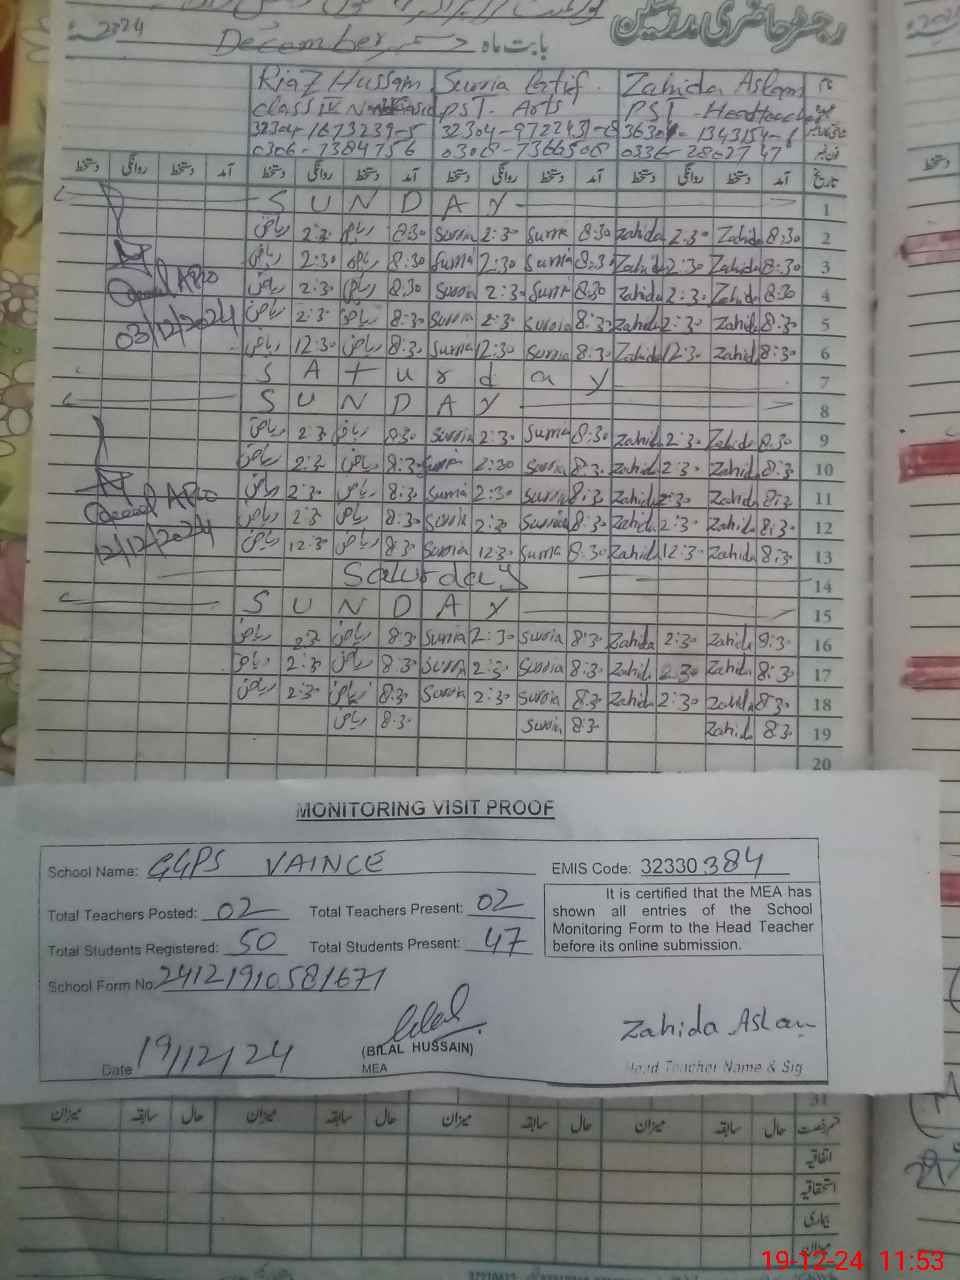 رجسٹر حاضری مدرسین
بابت ماہ December 2024
Riaz Hussain Surria Latif Zahida Aslam
Class IV PST. Arts PST - Headteacher
32304-1673239-5 32304-9722431-8
0306-7384756 0308-7366508 0336-2862747
دستخط روانگی دستخط آمد دستخط روانگی دستخط آمد دستخط روانگی دستخط آمد دستخط روانگی دستخط آمد تاریخ
S U N D A Y 1
ریاض 2:30 ریاض 8:30 Surria 2:30 Surria 8:30 Zahida 2:30 Zahida 8:30 2
ریاض 2:30 ریاض 8:30 Surria 2:30 Surria 8:30 Zahida 2:30 Zahida 8:30 3
ریاض 2:30 ریاض 8:30 Surria 2:30 Surria 8:30 Zahida 2:30 Zahida 8:30 4
03/12/2024
ریاض 2:30 ریاض 8:30 Surria 2:30 Surria 8:30 Zahida 2:30 Zahid 8:30 5
ریاض 12:30 ریاض 8:30 Surria 12:30 Surria 8:30 Zahida 12:30 Zahid 8:30 6
S A t u r d a y 7
S U N D A Y 8
ریاض 2:30 ریاض 8:30 Surria 2:30 Surria 8:30 Zahida 2:30 Zahida 8:30 9
ریاض 2:30 ریاض 8:30 Surria 2:30 Surria 8:30 Zahid 2:30 Zahid 8:30 10
ریاض 2:30 ریاض 8:30 Surria 2:30 Surria 8:30 Zahid 2:30 Zahida 8:30 11
ریاض 2:30 ریاض 8:30 Surria 2:30 Surria 8:30 Zahid 2:30 Zahida 8:30 12
12/12/2024
ریاض 12:30 ریاض 8:30 Surria 12:30 Surria 8:30 Zahida 12:30 Zahida 8:30 13
Saturday 14
S U N D A Y 15
ریاض 2:30 ریاض 8:30 Surria 2:30 Surria 8:30 Zahida 2:30 Zahida 8:30 16
ریاض 2:30 ریاض 8:30 Surria 2:30 Surria 8:30 Zahid 2:30 Zahid 8:30 17
ریاض 2:30 ریاض 8:30 Surria 2:30 Surria 8:30 Zahid 2:30 Zahid 8:30 18
ریاض 8:30 Surria 8:30 Zahid 8:30 19
20
MONITORING VISIT PROOF
School Name: GGPS VAINCE EMIS Code: 32330384
Total Teachers Posted: 02 Total Teachers Present: 02
Total Students Registered: 50 Total Students Present: 47
School Form No. 24121910581671
It is certified that the MEA has
shown all entries of the School
Monitoring Form to the Head Teacher
before its online submission.
Date 19/12/24
Bilal
(BILAL HUSSAIN)
MEA
Zahida Aslam
Head Teacher Name & Sig
31
میزان سابقہ حال میزان سابقہ حال میزان سابقہ حال میزان سابقہ حال
اتفاقیہ
استحقاقیہ
بیماری
میزان
19-12-24 11:53